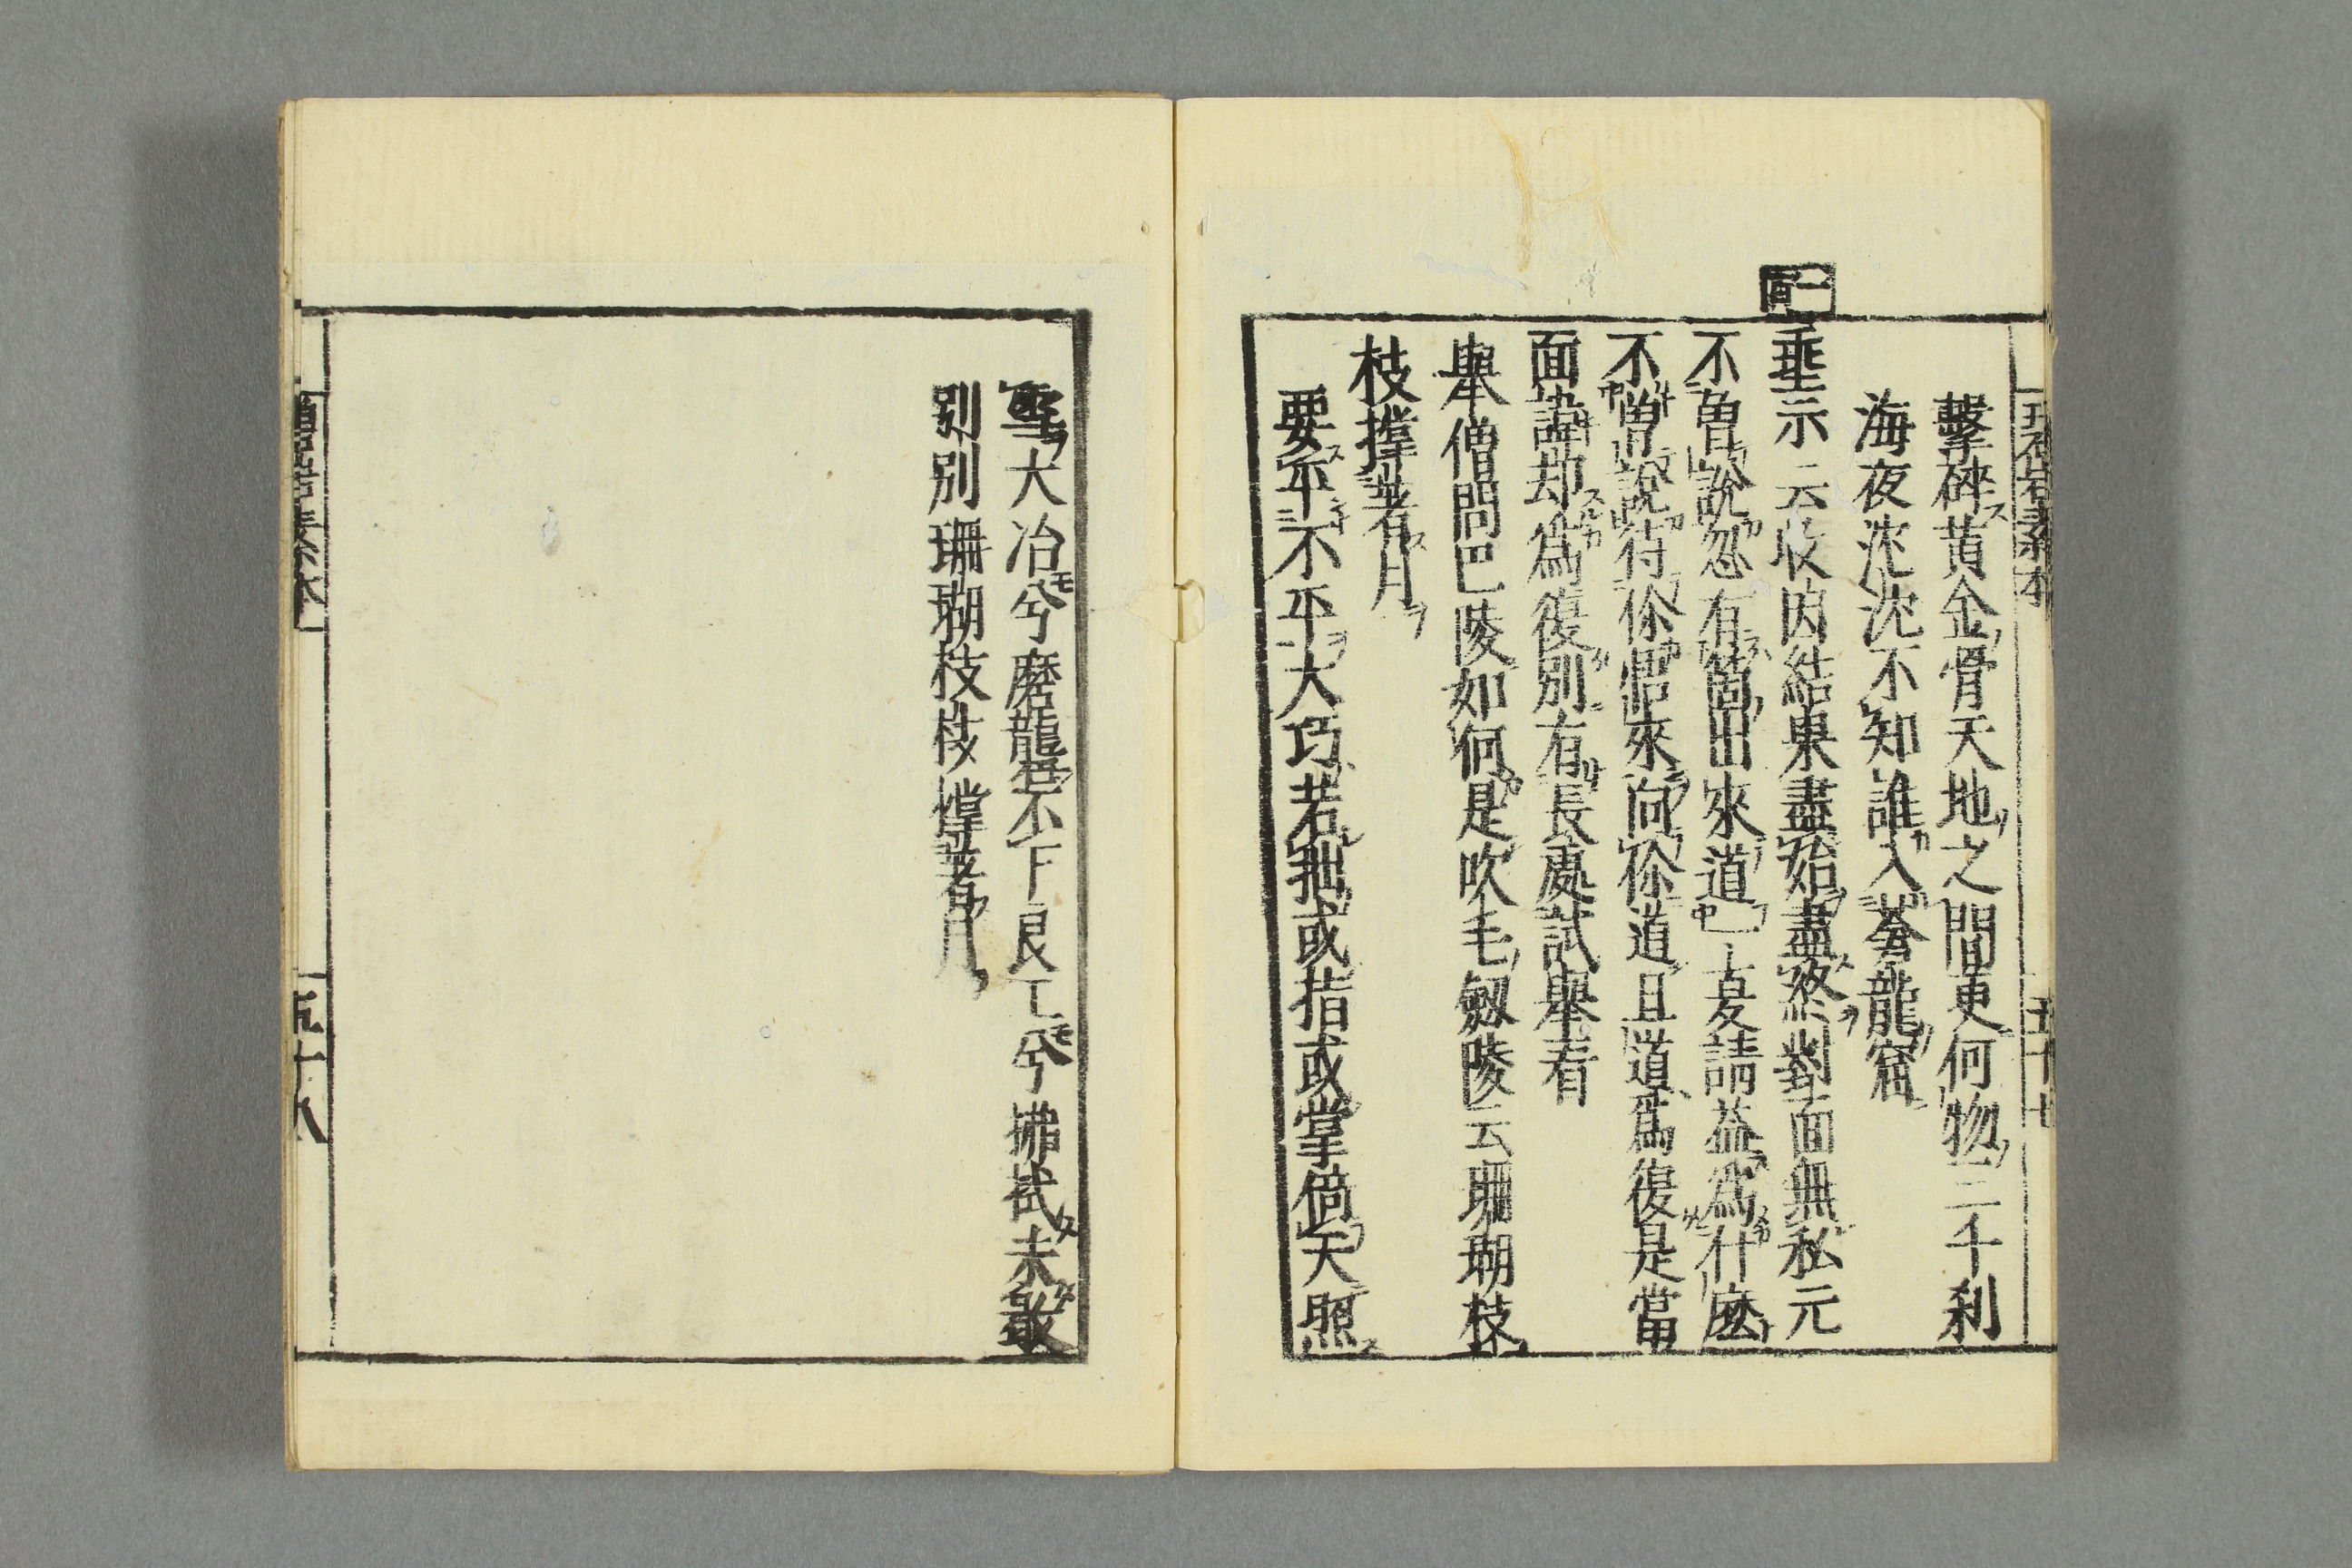 擊碎黃金骨天地之間更何物三千刹
海夜沈沈不知誰入蒼龍窟
一百
垂示云收因結果盡始盡終對面無私元
不曾說忽有箇出來道一夏請益爲什麼
不曾說待你悟來向你道且道爲復是當
面諱却爲復別有長處試擧看
擧僧問巴陵如何是吹毛劔陵云珊瑚枝
枝撑著月
要平不平大巧若拙或指或掌倚天照
五十七
雪大冶兮磨礱不下良工兮拂拭未歇
別別珊瑚枝枝撑著月
五十八